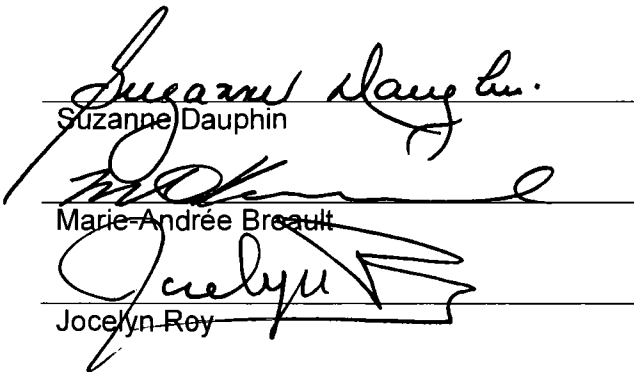 Suzanne Dauphin
Suzanne Dauphin
Marie-Andrée Breault
Jocelyn
Jocelyn Roy